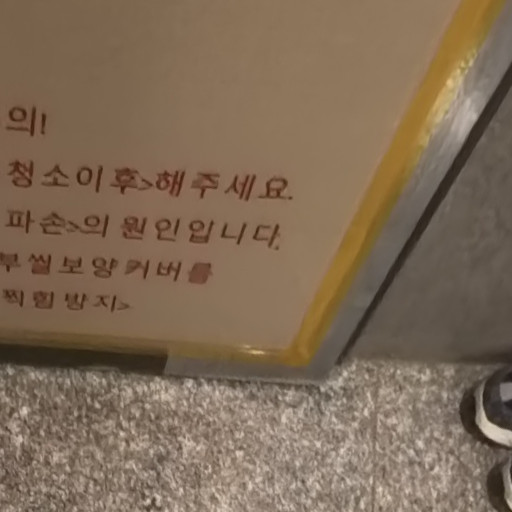 의!
청소이후>해주세요.
파손>의 원인입니다.
부씰보양커버를
찍힘방지>